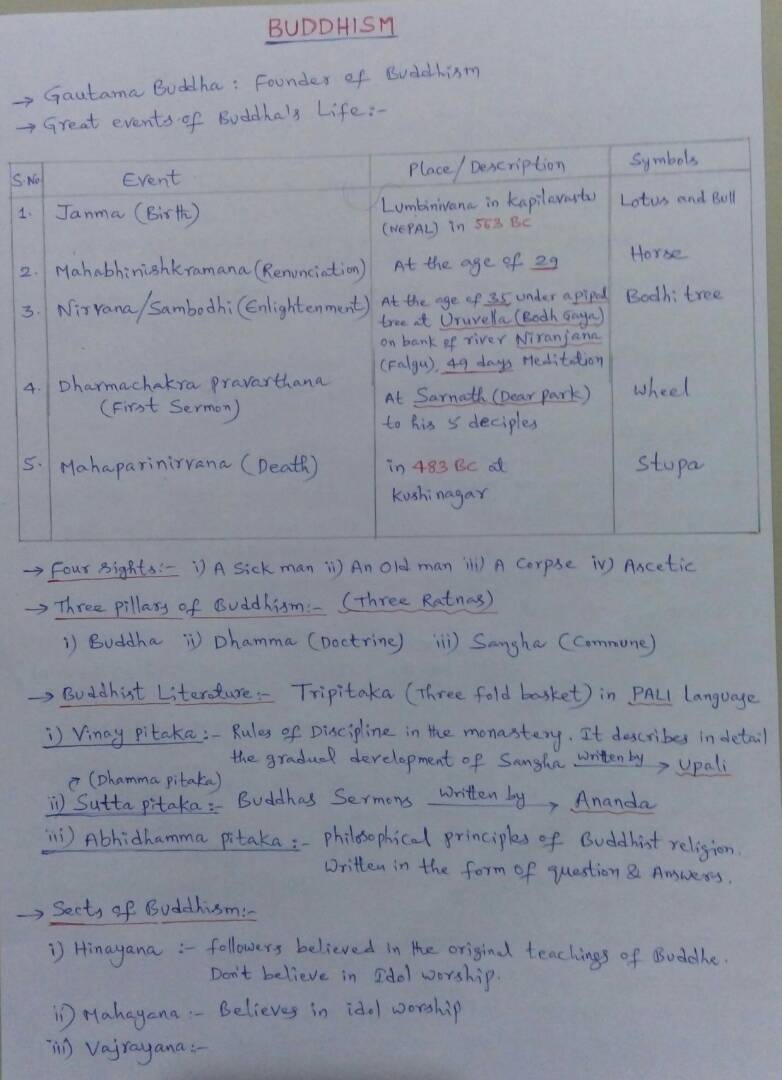 BUDDHISM
→ Gautama Buddha : Founder of Buddhism
→ Great events of Buddha's Life:-
S.No Event Place/Description Symbols
1. Janma (Birth) Lumbinivana in Kapilavastu Lotus and Bull
(NEPAL) in 563 BC
2. Mahabhinishkramana (Renunciation) At the age of 29 Horse
3. Nirvana/Sambodhi (Enlightenment) At the age of 35 under a pipal Bodhi tree
tree at Uruvella (Bodh Gaya)
on bank of river Niranjana
(Falgu), 49 days Meditation
4. Dharmachakra pravarthana At Sarnath (Dear park) Wheel
(First Sermon) to his 5 deciples
5. Mahaparinirvana (Death) in 483 BC at Stupa
Kushinagar
→ Four sights:- i) A Sick man ii) An Old man iii) A Corpse iv) Ascetic
→ Three pillars of Buddhism:- (Three Ratnas)
i) Buddha ii) Dhamma (Doctrine) iii) Sangha (Commune)
→ Buddhist Literature:- Tripitaka (Three fold basket) in PALI language
i) Vinay pitaka :- Rules of Discipline in the monastery. It describes in detail
the gradual development of Sangha written by → Upali
(Dhamma pitaka)
ii) Sutta pitaka :- Buddhas Sermons written by → Ananda
iii) Abhidhamma pitaka :- Philosophical principles of Buddhist religion.
Written in the form of question & Answers.
→ Sects of Buddhism:-
i) Hinayana :- followers believed in the original teachings of Buddhe.
Don't believe in Idol worship.
ii) Mahayana :- Believes in idol worship
iii) Vajrayana :-